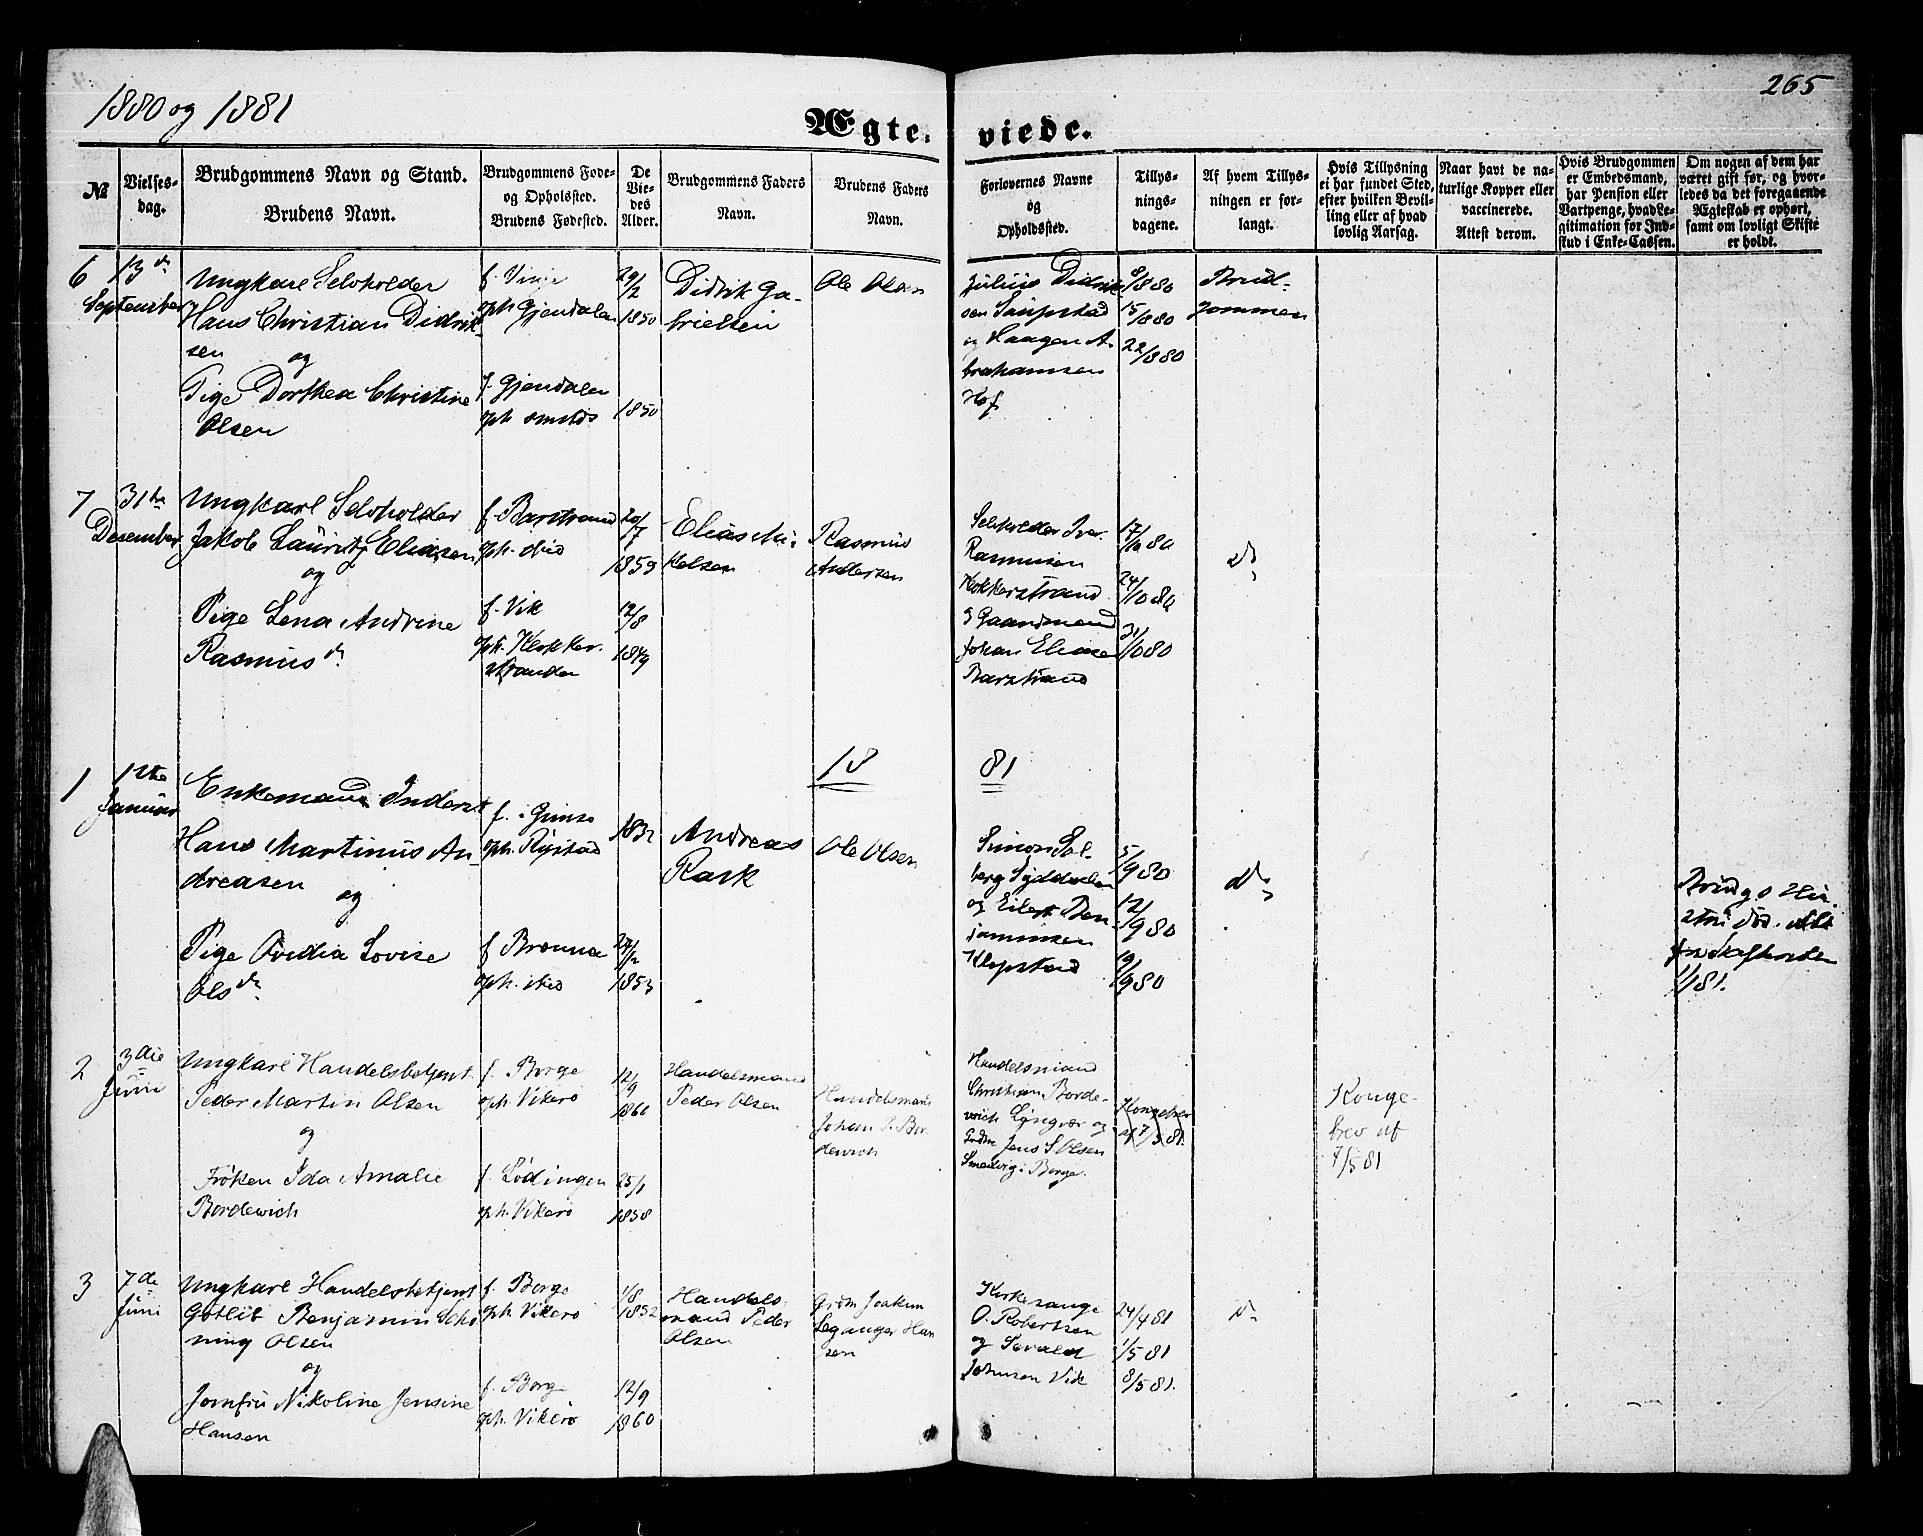 1880 og 1881
265
Ægte-
viede.
№
Vielses-
dag.
Brudgommens Navn og Stand.
Brudens Navn.
Brudgommens Føde-
og Opholsted.
Brudens Fødested.
De
Vie-
des
Alder.
Brudgommens Faders
Navn.
Brudens Faders
Navn.
Forlovernes Navne
og
Opholdssted.
Tillys-
nings-
dagene.
Af hvem Tillys-
ningen er for-
langt.
Hvis Tillysning
ei har fundet Sted,
efter hvilken Bevil-
ling eller af hvad
lovlig Aarsag.
Naar havt de na-
turlige Kopper eller
vaccinerede.
Attest derom.
Hvis Brudgommen
er Embedsmand,
har Pension eller
Vartpenge, hvad Le-
gitimation for Ind-
skud i Enke-Cassen.
Om nogen af dem har
været gift før, og hvor-
ledes da det foregaaende
Ægteskab er ophørt,
samt om lovligt Skifte
er holdt.
6
13de
September
Ungkarl Selvholder
Hans Christian Didrik-
sen
og
Pige Dorthea Christine
Olsen
f. Vinje
oph Gjendalen
f. Gjendalen
oph smsteds
29/2
1850
1850
Didrik Ga-
brielsen
Ole Olsen
Julius Didrik-
sen Saupstad
og Haagen A-
brahamsen
Hof
8/8 80
15/8 80
22/8 80
Brud-
gommen
7
31te
Desember
Ungkarl Selvholder
Jakob Lauritz Eliasen
og
Pige Lena Andrine
Rasmusdr
f. Barstrand
oph. ibid
f. Vik
oph. Klokker-
stranden
20/7
1859
12/8
1849
Elias Mi-
kelsen
Rasmus
Andersen
Selvholder Iver
Rasmusen
Klokkerstrand
og Gaardmand
Johan Eliasen
Barstrand
17/10 80
24/10 80
31/10 80
do
18
81
1
Januar
Enkemand Inderst
Hans Martinus An-
dreasen
og
Pige Ovedia Lovise
Olsdr
f. i Gimsø
oph. Rystad
f Brenna
oph. ibid
183
24/2
1853
Andreas
Rask
Ole Olsen
Simon Sol-
berg Syddalen
og Eilert Ben-
jaminsen
Klepstad
5/9 80
12/9 80
19/9 80
do
1/1 81.
2
3die
Juni
Ungkarl Handelsbetjent
Peder Martin Olsen
og
Frøken Ida Amalie
Bordewich
f. Borge
oph. Vikerö
f. Lödingen
oph. Vikerö
12/9
1860
25/1
1858
Handelsmand
Peder Olsen
Handelsmand
Johan P. Bor-
dewich
Handelsmand
Christian Borde-
wich Lyngvær og
Grdbr Jens S Olsen
Smedvig i Borge.
Kongebrev
af 7/5 81.
Konge-
brev af
7/5 81
3
7de
Juni
Ungkarl Handelsbetjent
Gotlib Benjamin Schö
ning Olsen
og
Jomfru Nikoline Jensine
Hansen
f. Borge
oph. Vikerö
f. Borge
oph. Vikerö
1/8
1852
12/9
1860
Handels-
mand Peder
Olsen
Grdm Joakim
Leganger Han
sen
Kirkesanger
O. Robertsen
og Sevald
Johnsen Vik
24/4 81
1/5 81
8/5 81.
do